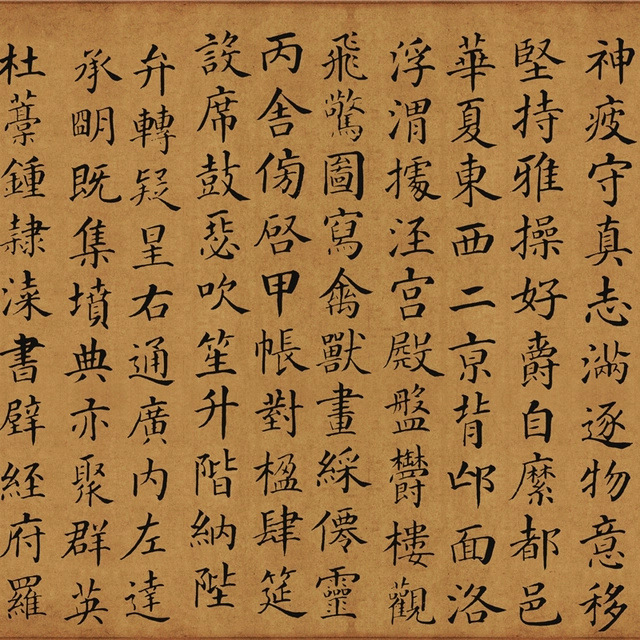 神疲守真志滿逐物意移
堅持雅操好爵自縻都邑
華夏東西二亰背邙面洛
浮渭據涇宮殿盤鬱樓觀
飛驚圖寫禽獸畫綵僊靈
丙舍傍啓甲帳對楹肆筵
設席鼓瑟吹笙升階納陛
弁轉疑星右通廣内左達
承明既集墳典亦聚群英
杜藁鍾隸漆書壁經府羅